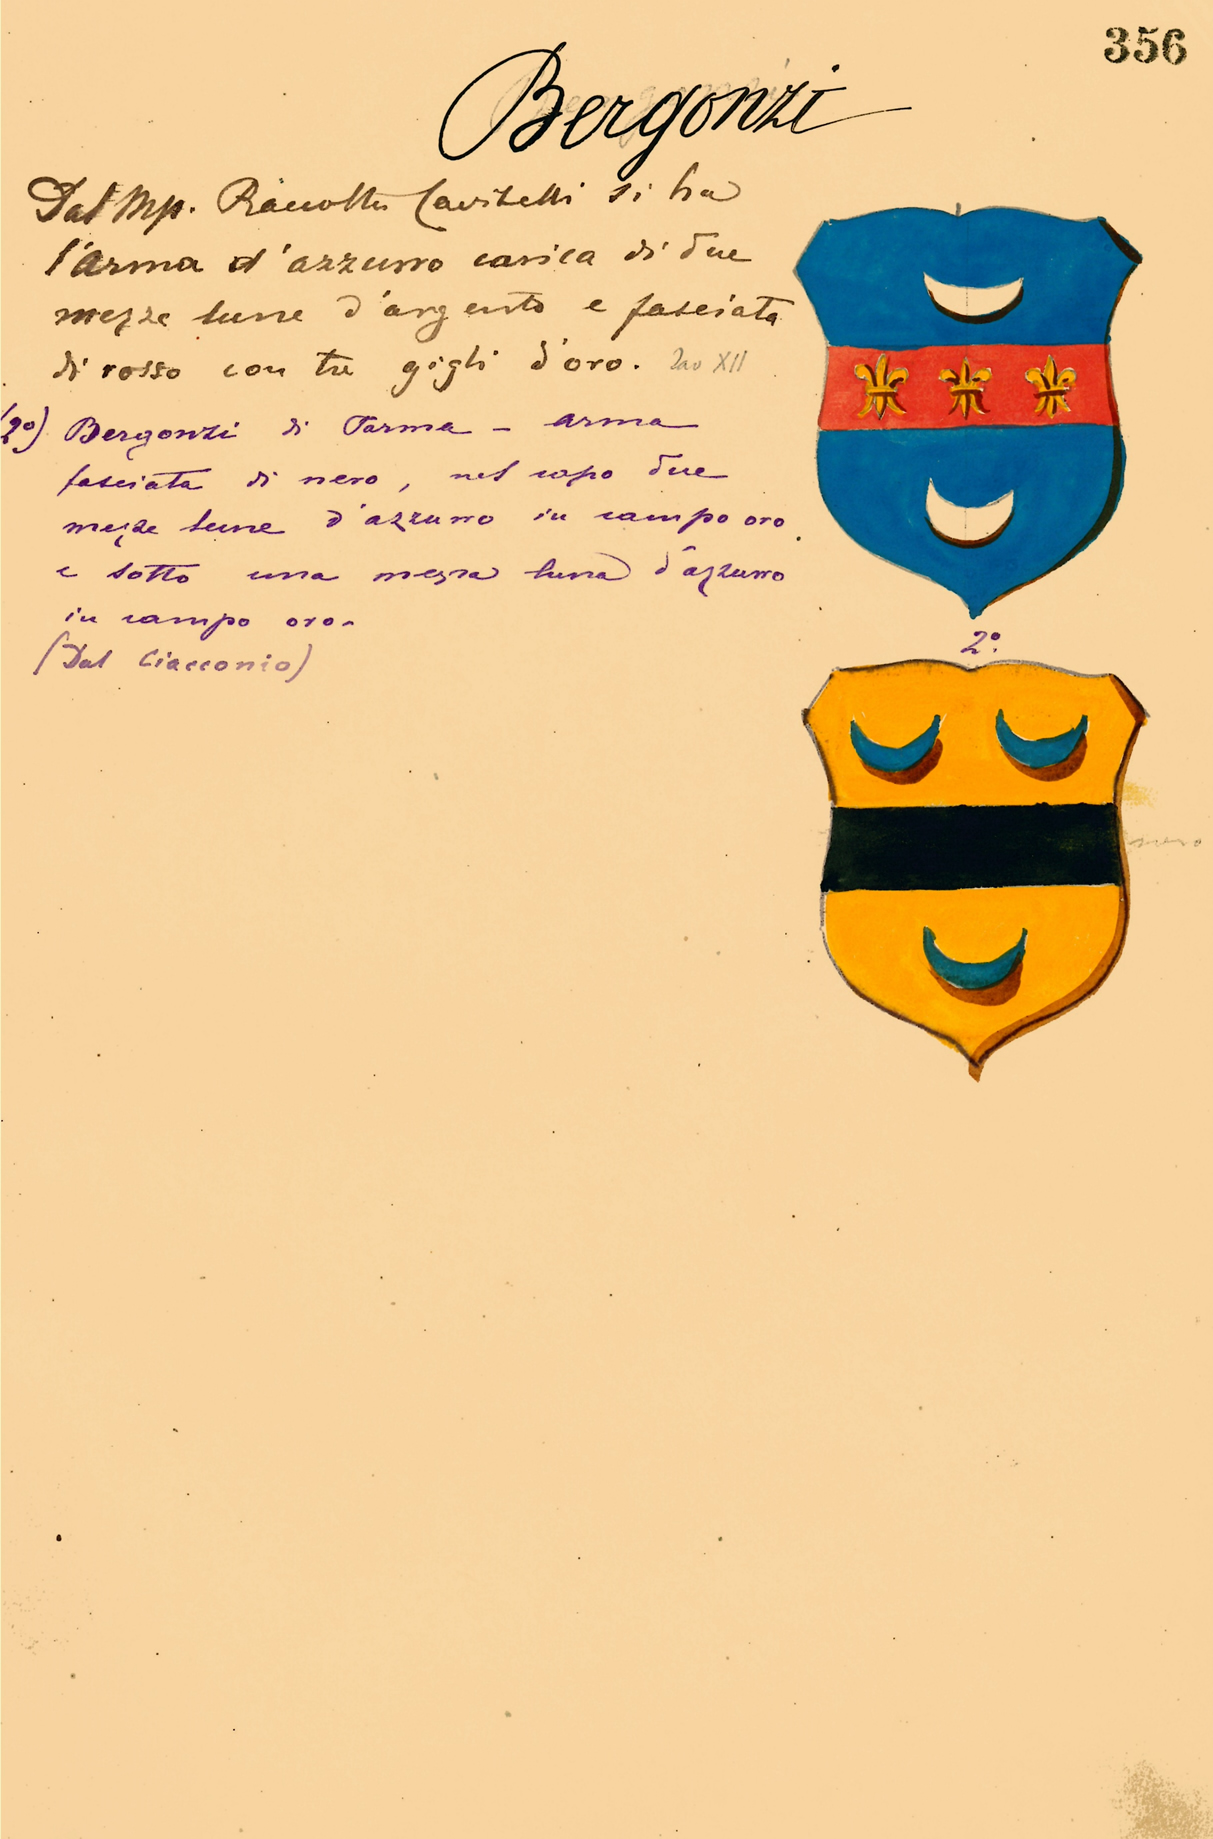 356
Bergonzi
Dal Mp. Raccolta Cavitelli si ha
l'arma d'azzurro carica di due
mezze lune d'argento e fasciata
di rosso con tre gigli d'oro. XII
(2º) Bergonzi di Parma - arma
fasciata di nero, nel capo due
mezze lune d'azzurro in campo oro
e sotto una mezza luna d'azzurro
in campo oro-
(Dal Ciacconio)
2º.
nero